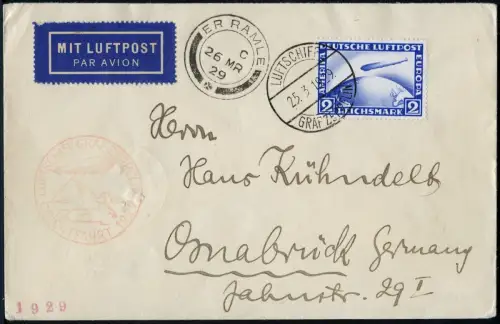 MIT LUFTPOST
PAR AVION
ER RAMLE
C
26 MR
29
LUFTSCHIFF
25.3.
GRAF ZEPPELIN
DEUTSCHE LUFTPOST
AMERIKA
EUROPA
2 REICHSMARK 2
Herrn
Hans Kühndelt
Osnabrück Germany
Jahnstr. 29 I
1929